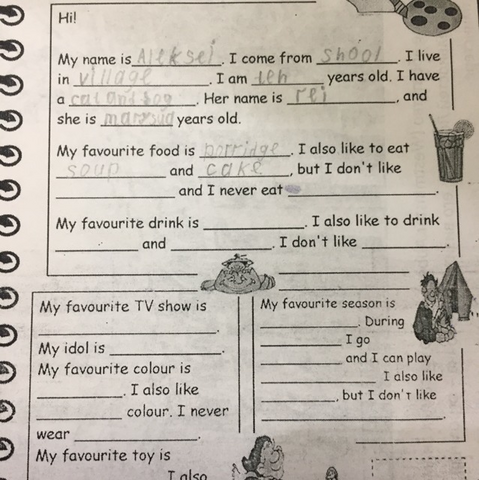 Hi!
My name is Aleksei. I come from shool. I live
in village. I am ten years old. I have
a cat and dog. Her name is rei, and
she is years old.
My favourite food is porridge. I also like to eat
soup and cake, but I don't like
and I never eat .
My favourite drink is . I also like to drink
and . I don't like .
My favourite TV show is
.
My idol is .
My favourite colour is
. I also like
colour. I never
wear .
My favourite toy is
I also
My favourite season is
. During
I go
and I can play
I also like
, but I don't like
.